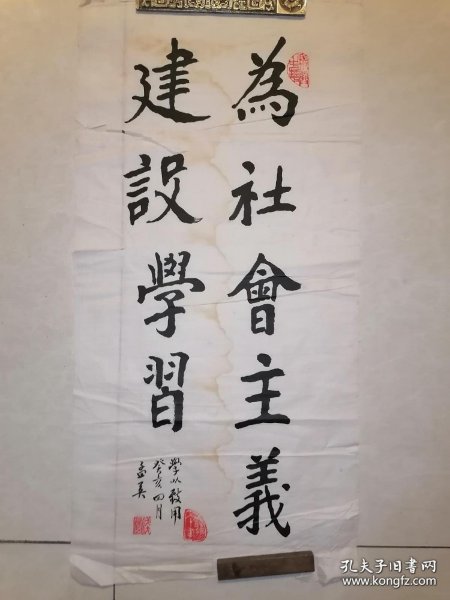 為社會主義
建設學習
學以致用
癸亥四月
孔夫子旧书网
www.kongfz.com